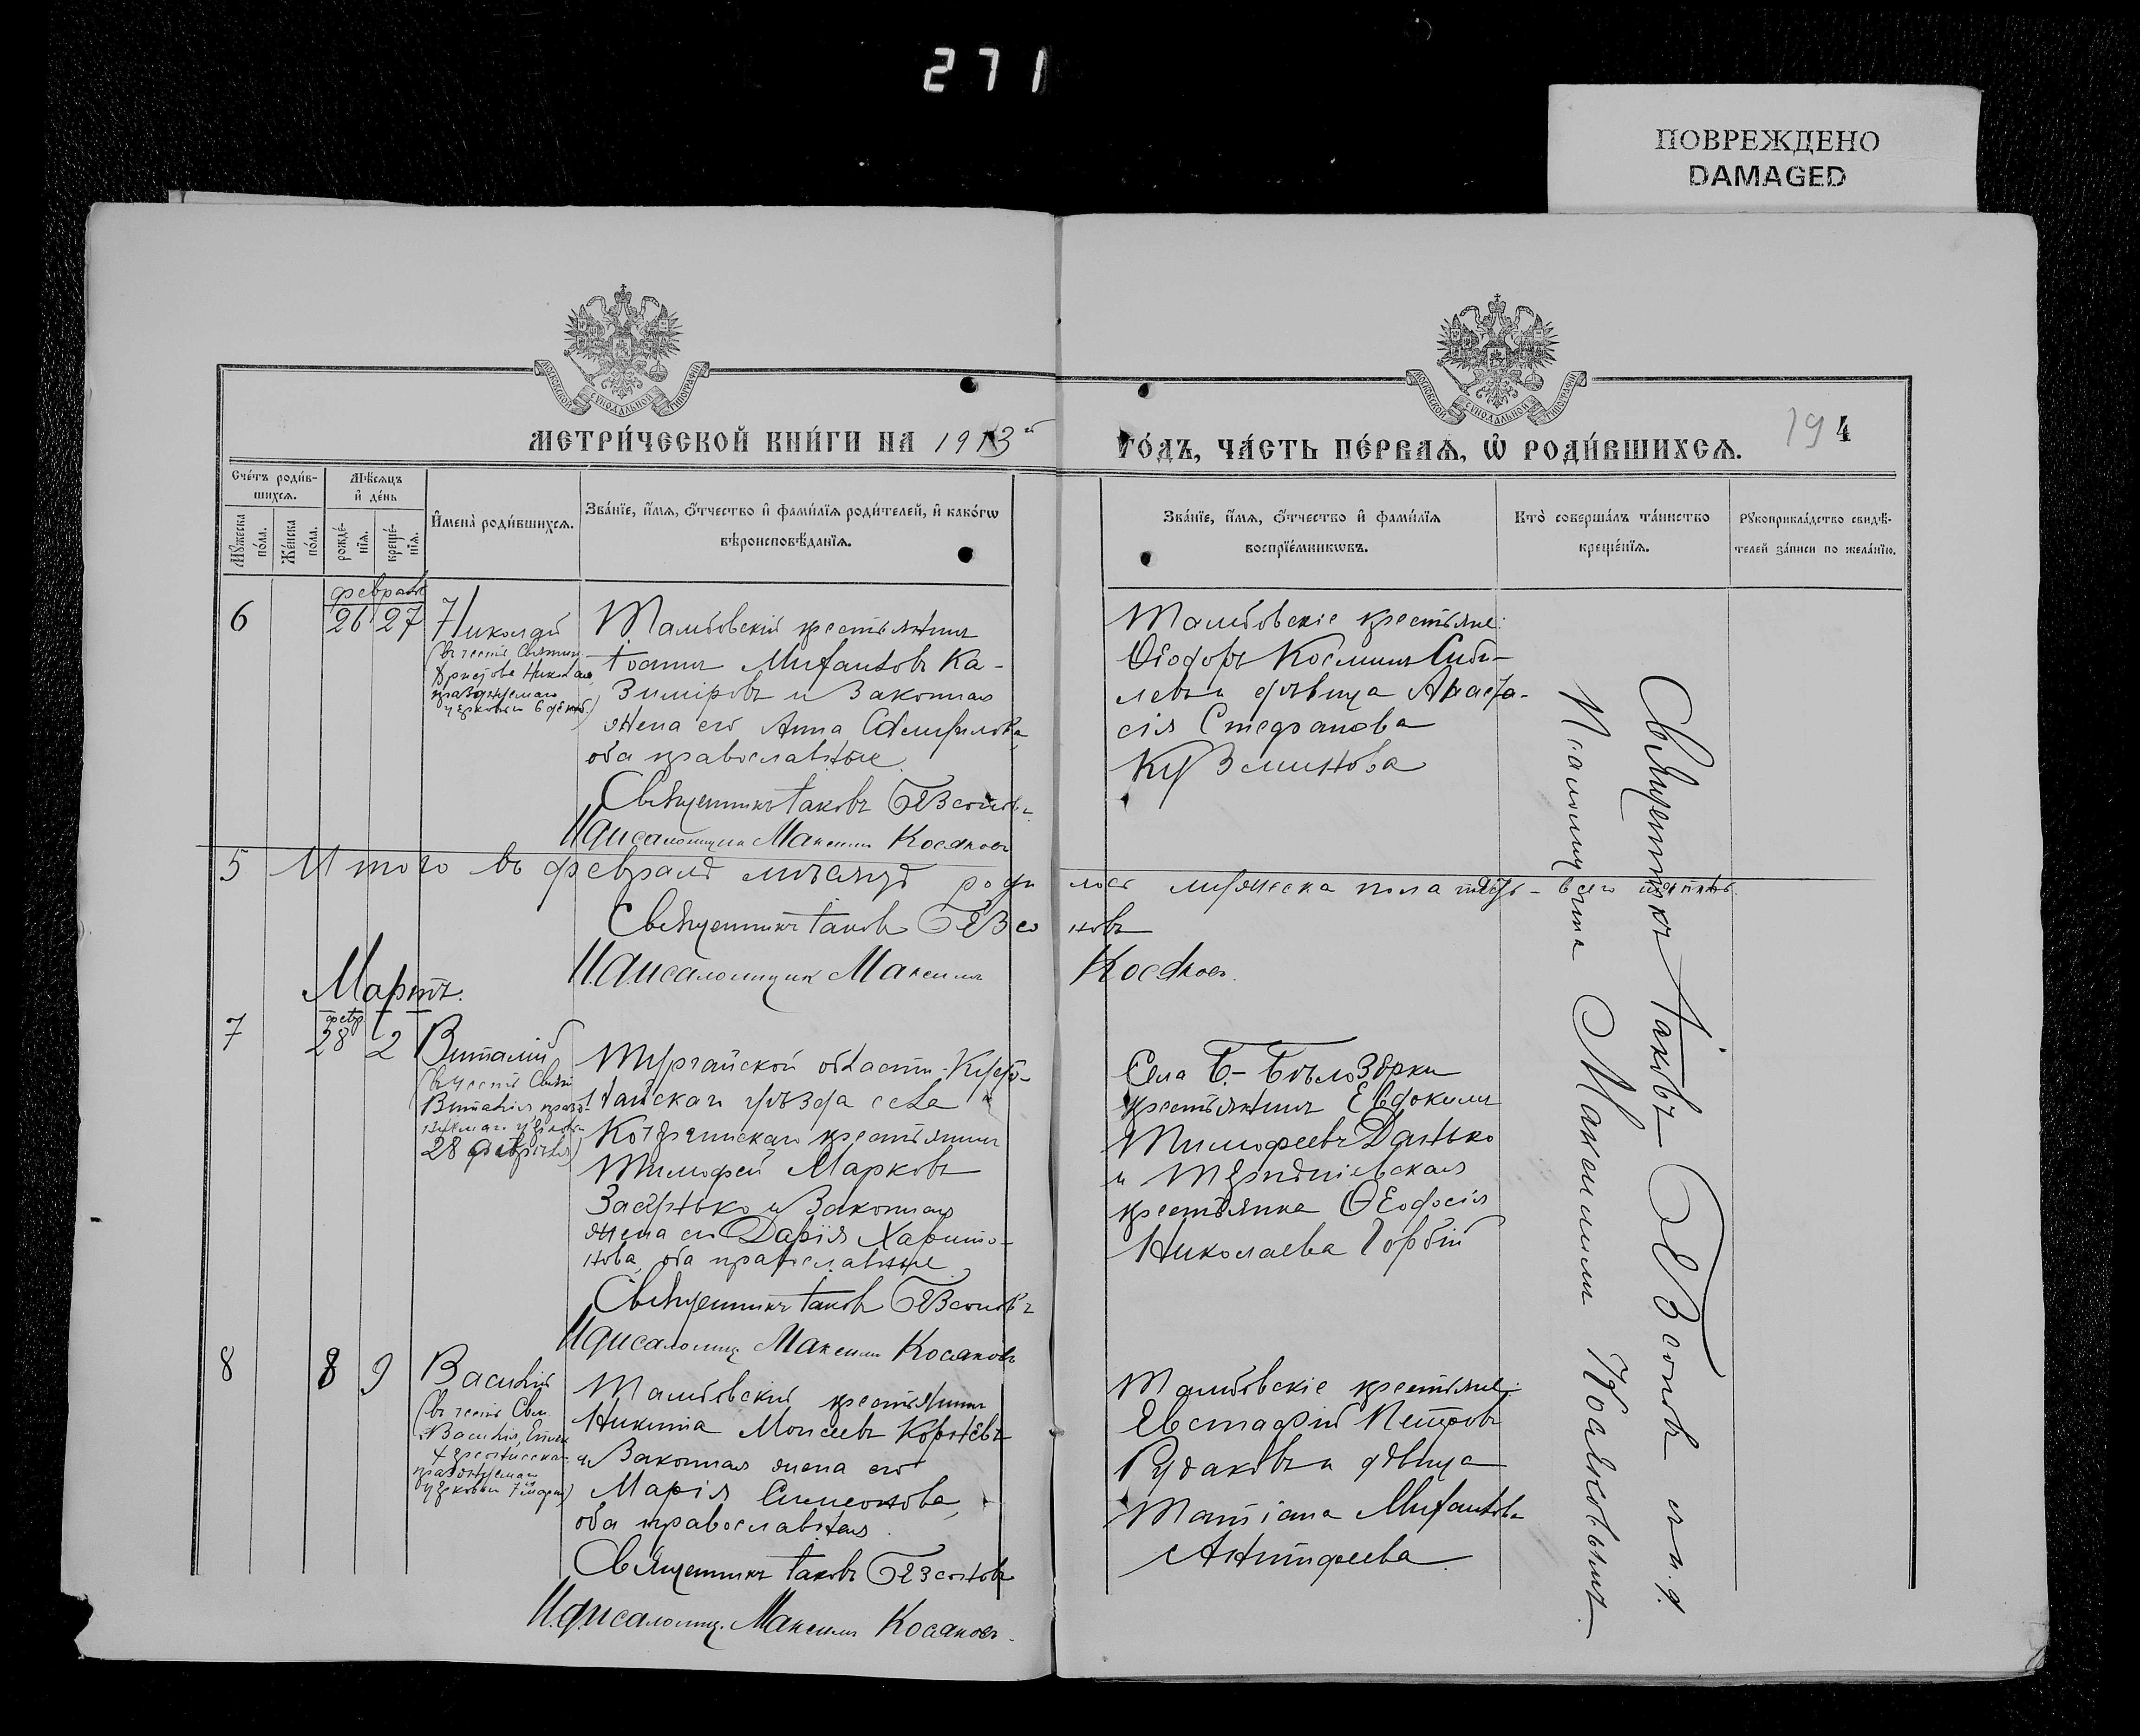 271
ПОВРЕЖДЕНО
DAMAGED
МОСКОВСКОЙ СѴНОДАЛЬНОЙ ТИПОГРАФІИ
МОСКОВСКОЙ СѴНОДАЛЬНОЙ ТИПОГРАФІИ
МЕТРИ́ЧЕСКОЙ КНИ́ГИ НА 1913й
ГО́ДЪ, ЧА́СТЬ ПЕ́РВАЯ, Ѡ РОДИ́ВШИХСЯ.
194
Сче́тъ роди́в-
шихся.
Мѣсяцъ
и де́нь
Мꙋ́жеска по́ла.
Же́нска по́ла.
рожде́-
нїя.
креще́-
нїя.
И҆мена̀ роди́вшихся.
Зва́нїе, и҆́мя, ѻ҆́тчество и҆ фами́лїя роди́телей, и҆ како́гѡ
вѣроисповѣ́данїя.
Зва́нїе, и҆́мя, ѻ҆́тчество и҆ фами́лїя
воспрїе́мникѡвъ.
Кто̀ соверша́лъ та́инство
креще́нїя.
Рꙋкоприкла́дство свидѣ́-
телей за́писи по жела́нїю.
февраль
6 26 27 Николай
(въ честь Святит.
Христова Николая,
празднуемаго
церковью 6 декаб.)
Тамбовскій крестьянинъ
Іоаннъ Михаиловъ Ка-
зиміровъ и законная
жена его Анна
оба православные
Священникъ Іаковъ Безсоновъ
И.д.псаломщика Максимъ Косяковъ
Тамбовскіе крестьяне:
Ѳеодоръ Косминъ Сиби-
левъ и дѣвица Анаста-
сія Стефанова
Кузьминова
5 Итого въ февралѣ мѣсяцѣ роди
лось мужеска пола пять - всего пять.
Священникъ Іаковъ Безсо
новъ
И.д.псаломщика Максимъ
Косяковъ.
Мартъ.
февр
7 28 2 Виталій
(въ честь Свят
Виталія, празд-
нуемаго церковью
28 февраля)
Тургайской области - Куста-
найскаго уѣзда села
крестьянинъ
Тимофей Марковъ
и законная
жена его Дарія Харито-
нова, оба православные
Священникъ Іаковъ Безсоновъ
И.д.псаломщ. Максимъ Косяковъ
Села Б.- Бѣлозерки
крестьянинъ Евдокимъ
Тимофеевъ Данько
и
крестьянка Ѳеодосія
Николаева Горбій
8 8 9 Василій
(въ честь Свящ.
Василія, Еписк
Херсонескаго
празднуемаго
церковью 7 марта)
Тамбовскій крестьянинъ
Никита Моисеевъ Корнѣевъ
и законная жена его
Марія Симеонова,
оба православная
Священникъ Іаковъ Безсоновъ
И.д.псаломщ. Максимъ Косяковъ.
Тамбовскіе крестьяне:
Евстафій Петровъ
Рудаковъ и дѣвица
Татіана Михаилова
Антифеева
Священникъ Іаковъ Безсоновъ съ и.д.
Псаломщика Максимомъ Косяковымъ.